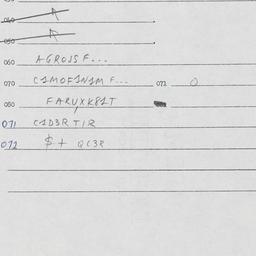 040
050
060 AGROSS F...
070 C1MOF1N1M F... 071 0
080 FARUXK81T
071 C1D3R T1R
072 $+ QC3R